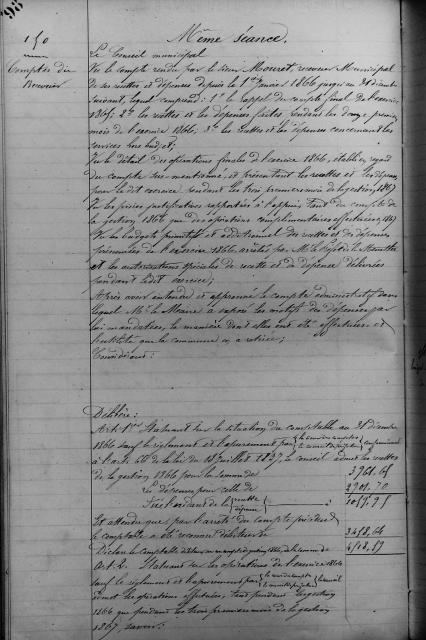 98
150
Même séance.
Comptes du
Receveur
Le Conseil municipal
Vu le compte rendu par le sieur receveur Municipal
de ses recettes et dépenses depuis le 1er janvier 1866 jusqu'au 31 décembre
suivant, lequel comprend: 1° le rappel du compte final de l'exercice
1865; 2° les recettes et les dépenses faites pendant les douze premiers
mois de l'exercice 1866; 3° les recettes et les dépenses concernant les
services hors budget;
Vu le détail des opérations finales de l'exercice 1866, établi en regard
du compte sus-mentionné, et présentant les recettes et les dépenses
pour le dit exercice pendant les trois premiers mois de la gestion 1867
Vu les pièces justificatives rapportées à l'appui, tant du compte de
la gestion 1866 que des opérations complémentaires effectuées en 1867
Vu les budgets primitif et additionnel des recettes et des dépenses
présumées de l'exercice 1866, arrêtés par M. le Préfet de la
et les autorisations spéciales de recette et de dépense délivrées
pendant ledit exercice;
Après avoir entendu et approuvé le compte administratif dans
lequel Mr le Maire a exposé les motifs des dépenses par
lui mandatées, la manière dont elles ont été effectuées et
l'utilité que la commune en a retirée;
Considérant:
Délibère:
Art. 1er Statuant sur la situation du comptable au 31 décembre
1866 sauf le règlement et l'apurement par conformément
à l'art. 66 de la loi du 18 juillet 1837, le conseil admet les recettes
de la gestion 1866 pour la somme de
Les dépenses pour celle de 2901.70
Fixe l'excédant de la recette
dépense
Et attendu que, par l'arrêté du compte précédent
le comptable a été reconnu débiteur de
Déclare le comptable débiteur au 31 décembre 1866, de la somme de
Art. 2. Statuant sur les opérations de l'exercice 1866
sauf le règlement et l'apurement par le conseil
admet les opérations effectuées, tant pendant la gestion
1866 que pendant les trois premiers mois de la gestion
1867, savoir: